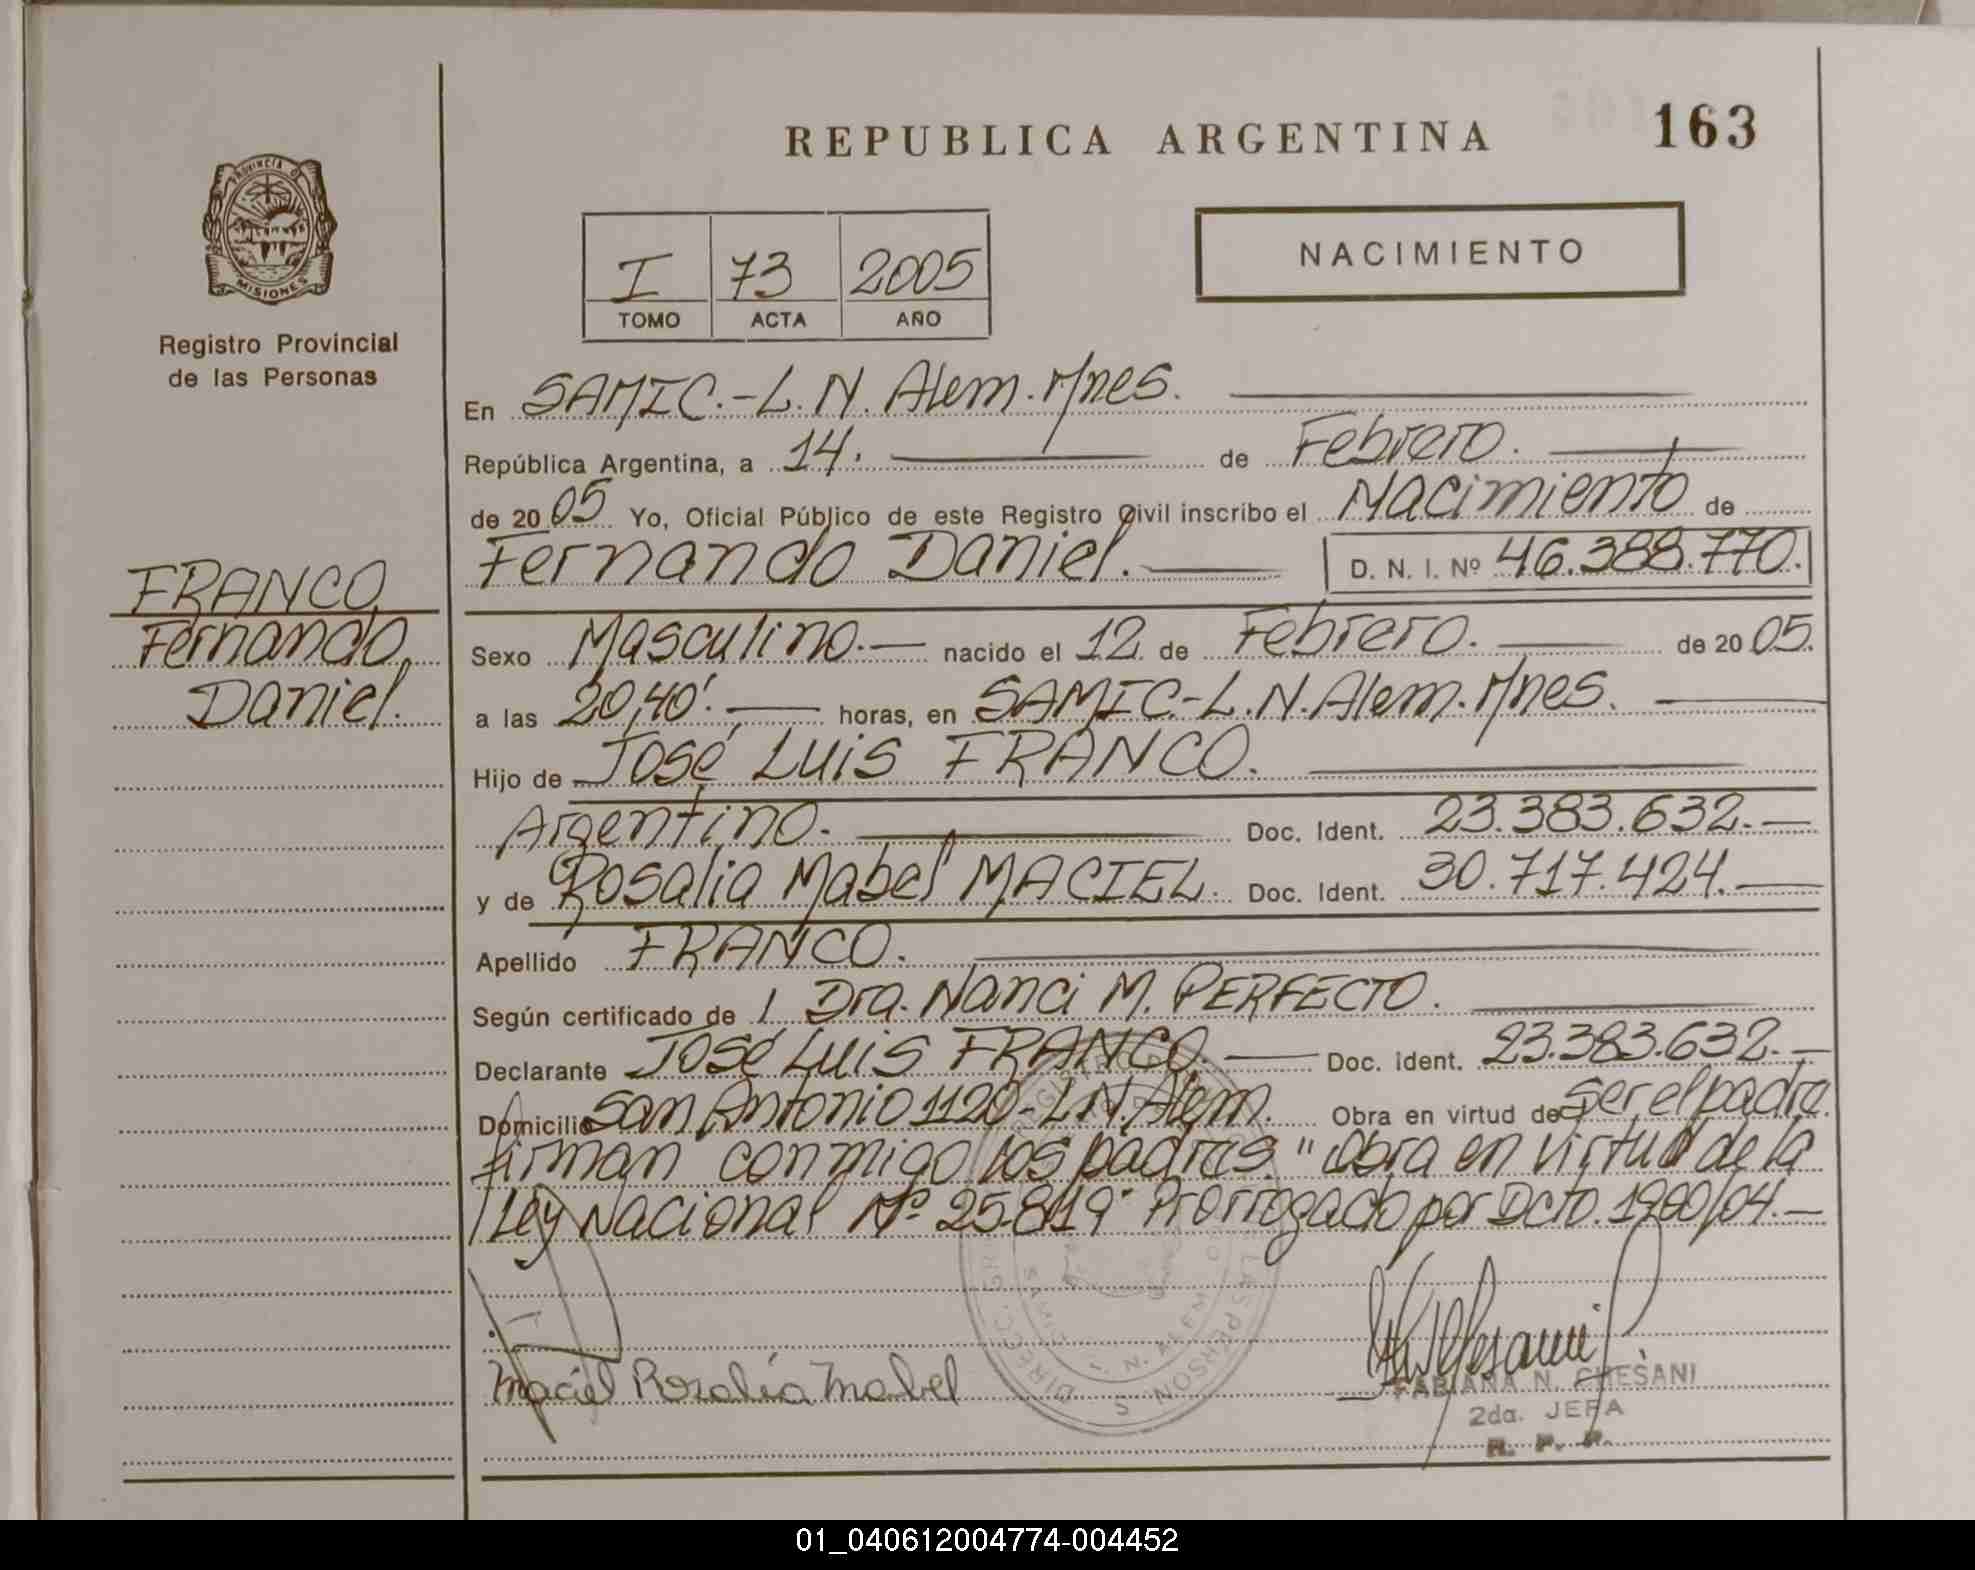 REPUBLICA ARGENTINA
163
PROVINCIA DE
MISIONES
Registro Provincial
de las Personas
NACIMIENTO
I 73 2005
TOMO ACTA AÑO
En SAMIC.-L.N. Alem. Mnes.
República Argentina, a 14. de Febrero.
de 20 05 Yo, Oficial Público de este Registro Civil inscribo el Nacimiento de
Fernando Daniel. D. N. I. Nº 46.388.770.
FRANCO,
Fernando,
Daniel.
Sexo Masculino.- nacido el 12 de Febrero. de 20 05.
a las 20,40'. horas, en SAMIC.-L.N. Alem. Mnes.
Hijo de José Luis FRANCO.
Argentino. Doc. Ident. 23.383.632.-
y de Rosalia Mabel MACIEL. Doc. Ident. 30.717.424.-
Apellido FRANCO.
Según certificado de / Dra. Nanci M. PERFECTO.
Declarante José Luis FRANCO, Doc. ident. 23.383.632.-
Domicilio San Antonio 1120-L.N. Alem. Obra en virtud de ser el padre.
firman conmigo los padres. "Obra en virtud de la
Ley Nacional Nº 25.819" Prorrogado por Dcto. 1900/04.-
Maciel Rosalía Mabel
FABIANA N. CHESANI
2da. JEFA
R. P. P.
01_040612004774-004452